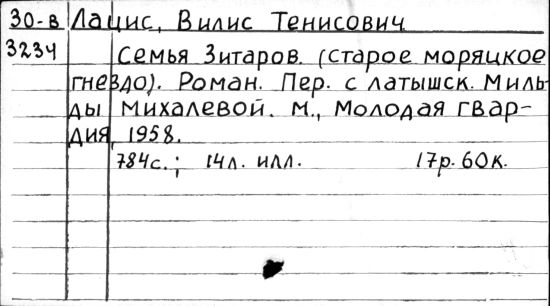 30-в Лацис, Вилис Тенисович
3234 Семья Зитаров. (Старое моряцкое
гнездо). Роман. Пер. с латышск. Миль-
ды Михалевой. М., Молодая гвар-
дия, 1958.
784с.; 14л. илл. 17р. 60к.